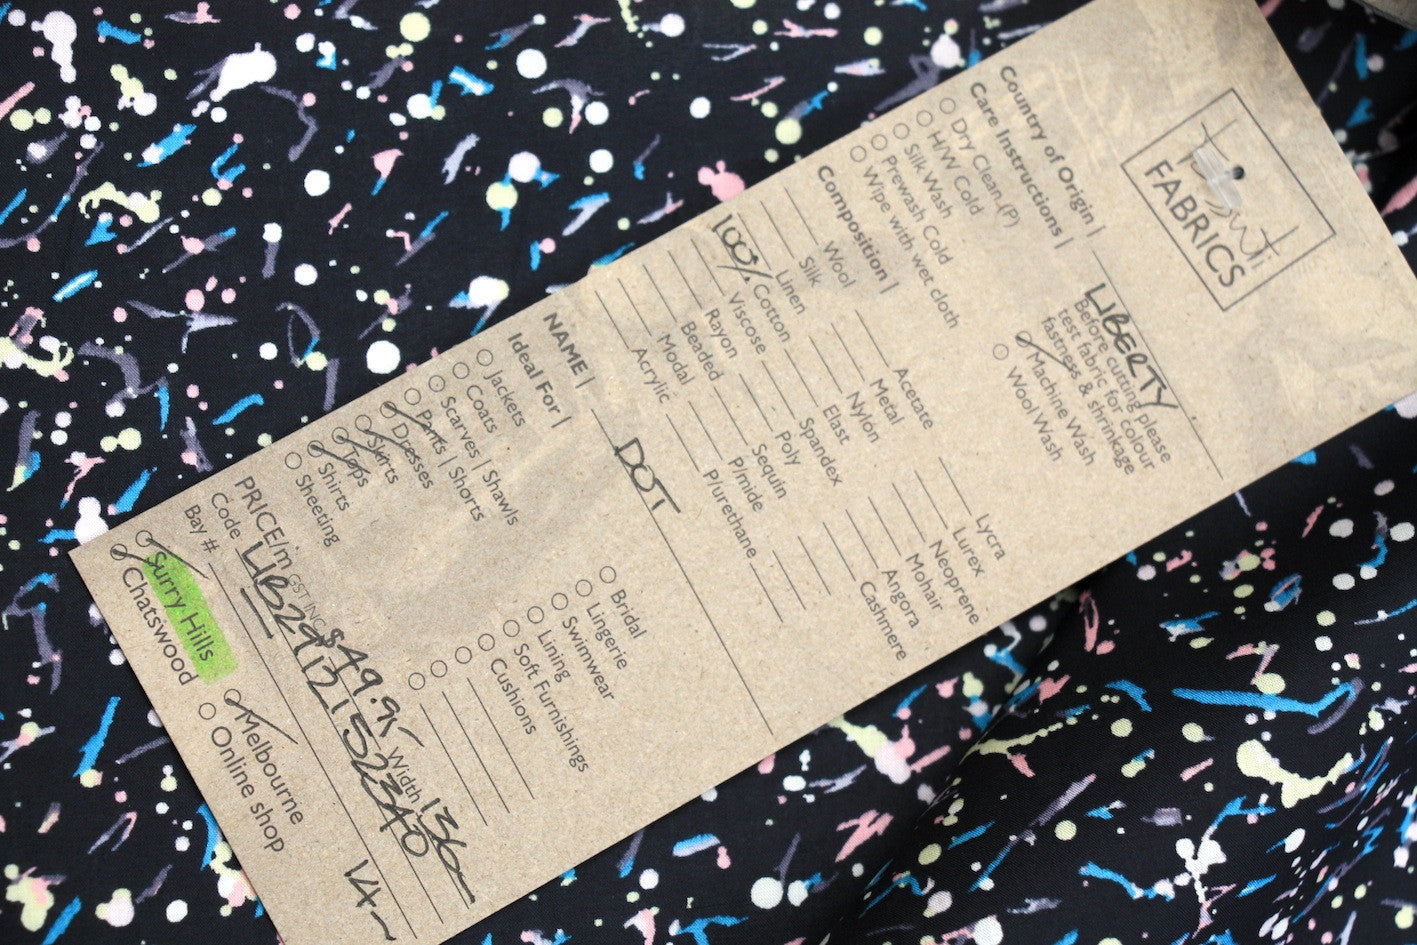 FABRICS
Country of Origin | LIBERTY
Care Instructions | Before cutting please
test fabric for colour
fastness & shrinkage
Dry Clean (P)
H/W Cold
Silk Wash
Prewash Cold
Wipe with wet cloth
Machine Wash
Wool Wash
Composition |
Wool
Silk
Linen
100% Cotton
Viscose
Rayon
Beaded
Modal
Acrylic
Acetate
Metal
Nylon
Elast
Spandex
Poly
Sequin
P/mide
P/urethane
Lycra
Lurex
Neoprene
Mohair
Angora
Cashmere
NAME | DOT
Ideal For |
Jackets
Coats
Scarves | Shawls
Pants | Shorts
Dresses
Skirts
Tops
Shirts
Sheeting
Bridal
Lingerie
Swimwear
Lining
Soft Furnishings
Cushions
PRICE/m GST INC $49.95 Width 136
Code
Bay # 14
Surry Hills
Chatswood
Melbourne
Online shop